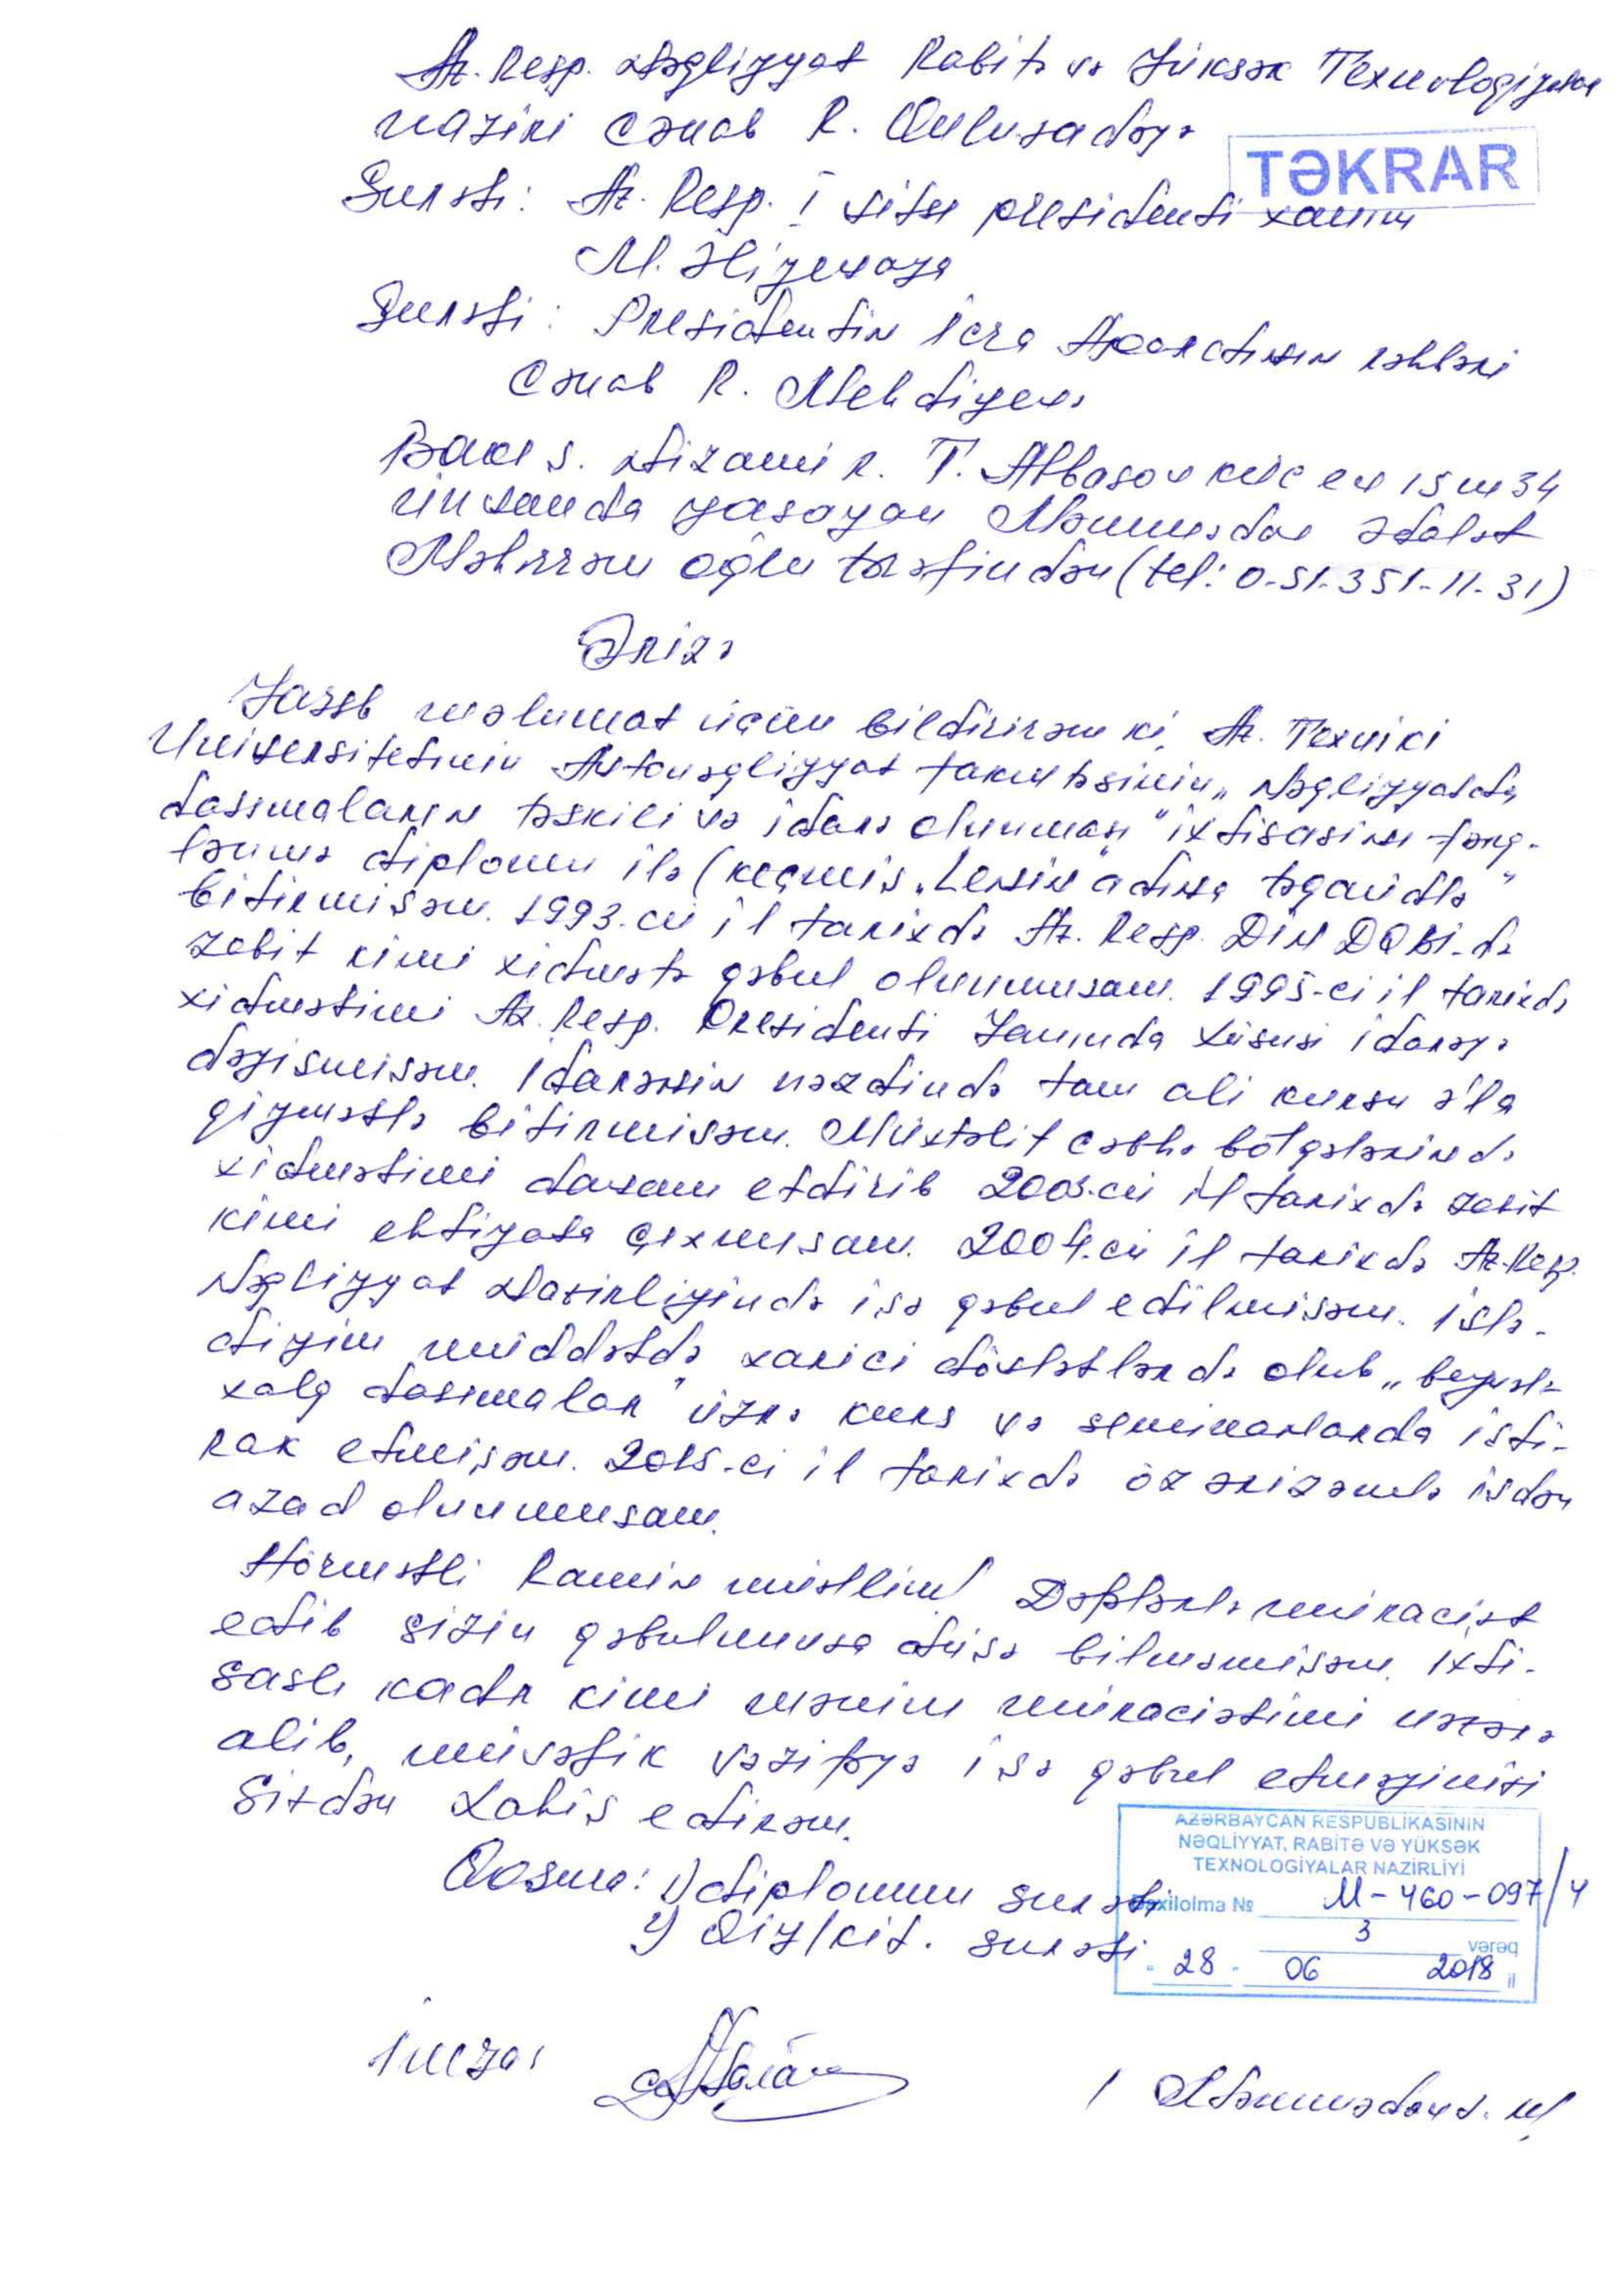 Az. Resp. Nəqliyyat Rabitə və Yüksək Texnologiyalar
naziri cənab R. Quluzadəyə
TƏKRAR
Surəti: Az. Resp. I vitse prezidenti xanım
M. Əliyevaya
Surəti: Prezidentin İcra Aparatının rəhbəri
Cənab R. Mehdiyevə
Bakı ş. Nizami r. T. Abbasov küç ev 15 m 34
ünvanda yaşayan Məmmədov Ədalət
Məhərrəm oğlu tərəfindən (tel: 0-51-351-11-31)
Ərizə
Yazıb məlumat üçün bildirirəm ki, Az. Texniki
Universitetinin Avtonəqliyyat fakultəsinin „Nəqliyyatda
daşımaların təşkili və idarə olunması" ixtisasını fərq-
lənmə diplomu ilə (keçmiş „Lenin" adına təqaüdlə"
bitirmişəm. 1993-cü il tarixdə Az. Resp. DİN DQBİ-də
zabit kimi xidmətə qəbul olunmuşam. 1995-ci il tarixdə
xidmətimi Az. Resp. Prezidenti Yanında Xüsusi İdarəyə
dəyişmişəm. İdarənin nəzdində tam ali kursu əla
qiymətlə bitirmişəm. Müxtəlif cəbhə bölgələrində
xidmətimi davam etdirib 2003-cü il tarixdə zabit
kimi ehtiyata çıxmışam. 2004-cü il tarixdə Az. Resp.
Nəqliyyat Nazirliyində işə qəbul edilmişəm. İşlə-
diyim müddətdə xarici dövlətlərdə olub „beynəl-
xalq daşımalar" üzrə kurs və seminarlarda işti-
rak etmişəm. 2015-ci il tarixdə öz ərizəmlə işdən
azad olunmuşam.
Hörmətli Ramin müəllim! Dəfələrlə müraciət
edib sizin qəbulunuza düşə bilməmişəm. İxti-
saslı kadr kimi mənim müraciətimi nəzərə
alıb, müvafik vəzifəyə işə qəbul etməyinizi
Sizdən xahiş edirəm.
Qoşma: 1) diplomun surəti
2) Qiy/kit. surəti
AZƏRBAYCAN RESPUBLİKASININ
NƏQLİYYAT, RABİTƏ VƏ YÜKSƏK
TEXNOLOGİYALAR NAZİRLİYİ
Daxilolma № M-460-097/4
3 vərəq
" 28 " 06 2018 il
İmza:
/ Məmmədov Ə. M/